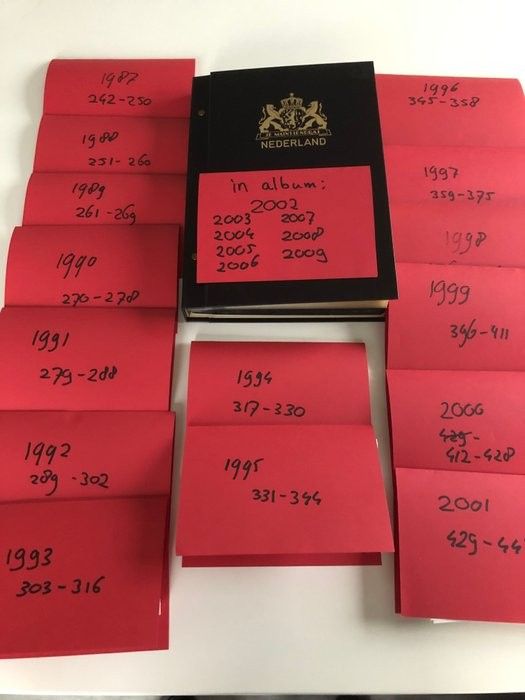 1987
242-250
1988
251-260
1989
261-269
1990
270-278
1991
279-288
1992
289-302
1993
303-316
JE MAINTIENDRAI
NEDERLAND
in album:
2002
2003 2007
2004 2008
2005 2009
2006
1994
317-330
1995
331-344
1996
345-358
1997
359-375
1998
1999
396-411
2000
429-
412-428
2001
429-44